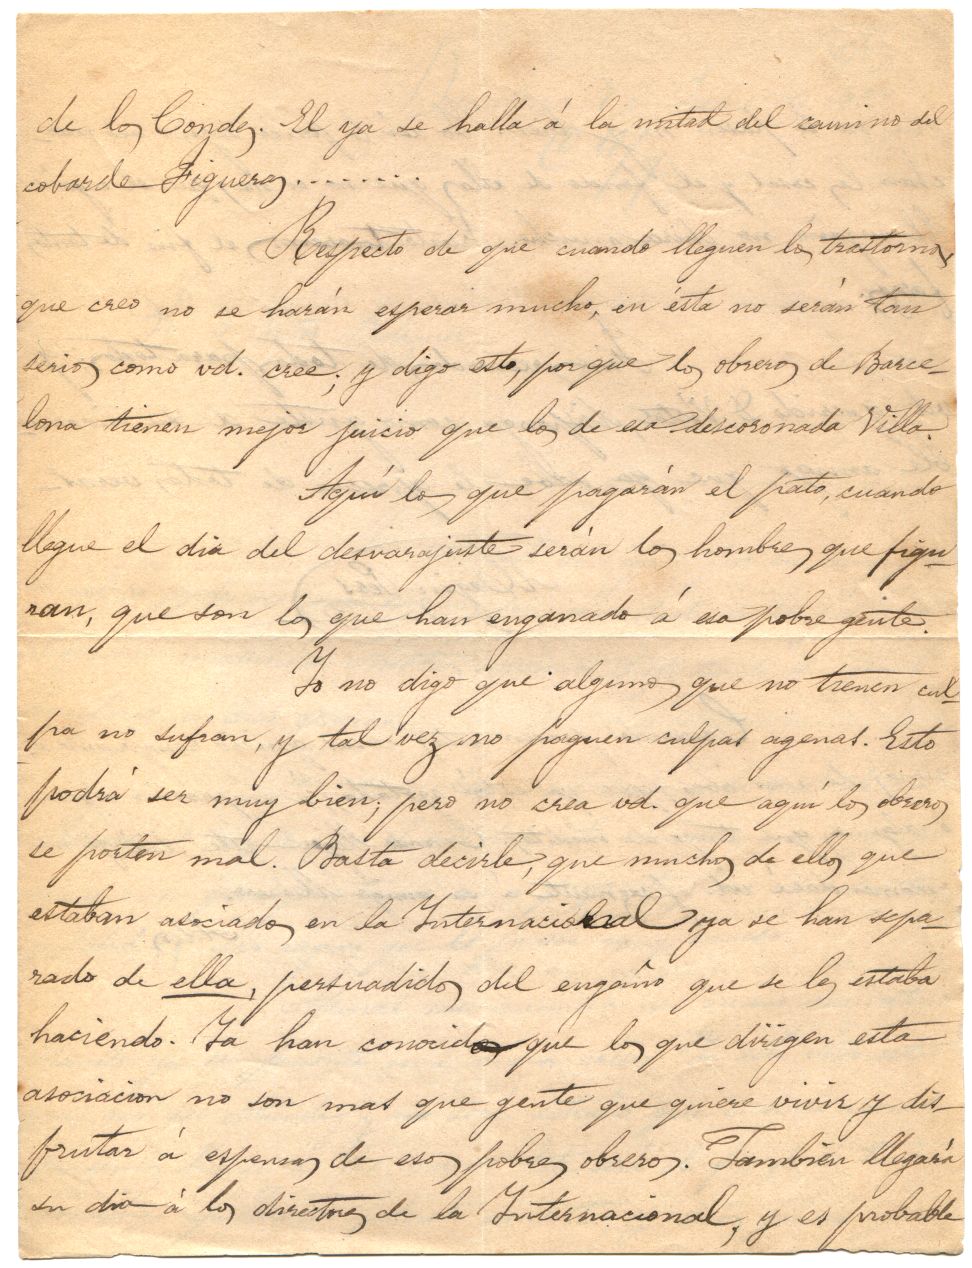 de los Condes. El ya se halla á la mitad del camino del
cobarde Figueras........
Respecto de que cuando lleguen los trastornos
que creo no se harán esperar mucho, en ésta no serán tan
serios como vd. cree; y digo esto, porque los obreros de Barce-
lona tienen mejor juicio que los de esa descoronada Villa.
Aquí los que pagarán el pato, cuando
llegue el dia del desvarajuste serán los hombres que figu-
ran, que son los que han enganado á esa pobre gente.
Yo no digo que algunos que no tienen cul-
pa no sufran, y tal vez no paguen culpas agenas. Esto
podrá ser muy bien; pero no crea vd. que aquí los obreros
se porten mal. Basta decirle, que muchos de ellos que
estaban asociados en la Internacional ya se han sepa-
rado de ella, persuadidos del engaño que se les estaba
haciendo. Ya han conocido que los que dirigen esta
asociacion no son mas que gente que quiere vivir y dis-
frutar á espensas de esos pobres obreros. Tambien llegará
su dia á los directores de la Internacional, y es probable